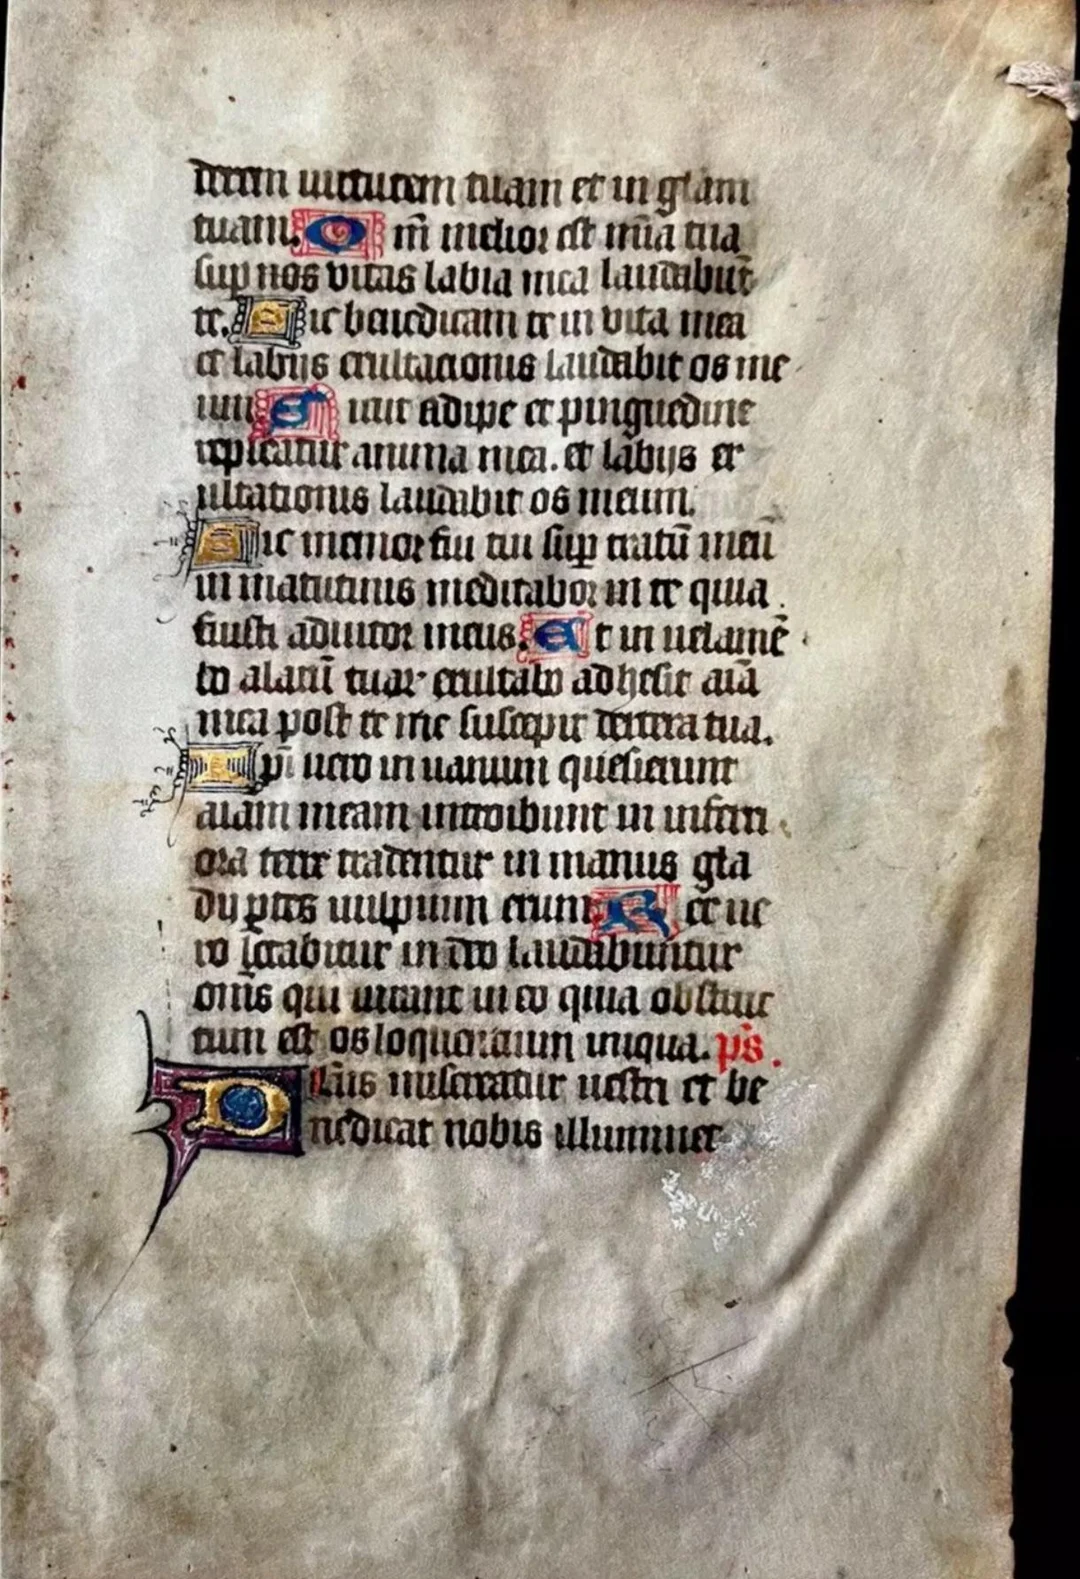 derem uirtutem tuam et in gl̄am
tuam. Q m̄ melior est mīa tua
sup nos vitas labia mea laudabūt
te. Sic benedicam te in vita mea
et labijs exultacionis laudabit os me
um. Sicut adipe et pinguedine
repleatur anima mea. et labijs ex
ultationis laudabit os meum.
Sic memor fui tui sup̄ stratū meū
in matutinis meditabor in te quia
fuisti adiutor meus. Et in uelamē
to alarū tuar exultabo adhesit aīa
mea post te me suscepit dextera tua.
Ip̄i uero in uanum quesierunt
aīam meam introibunt in inferi
ora terre tradentur in manus gla
dij ptes uulpium erunt Rex ue
ro letabitur in deo laudabuntur
om̄s qui iurant in eo quia obstruc
tum est os loquentium iniqua. ps̄.
Deus misereatur nostri et be
nedicat nobis illuminet